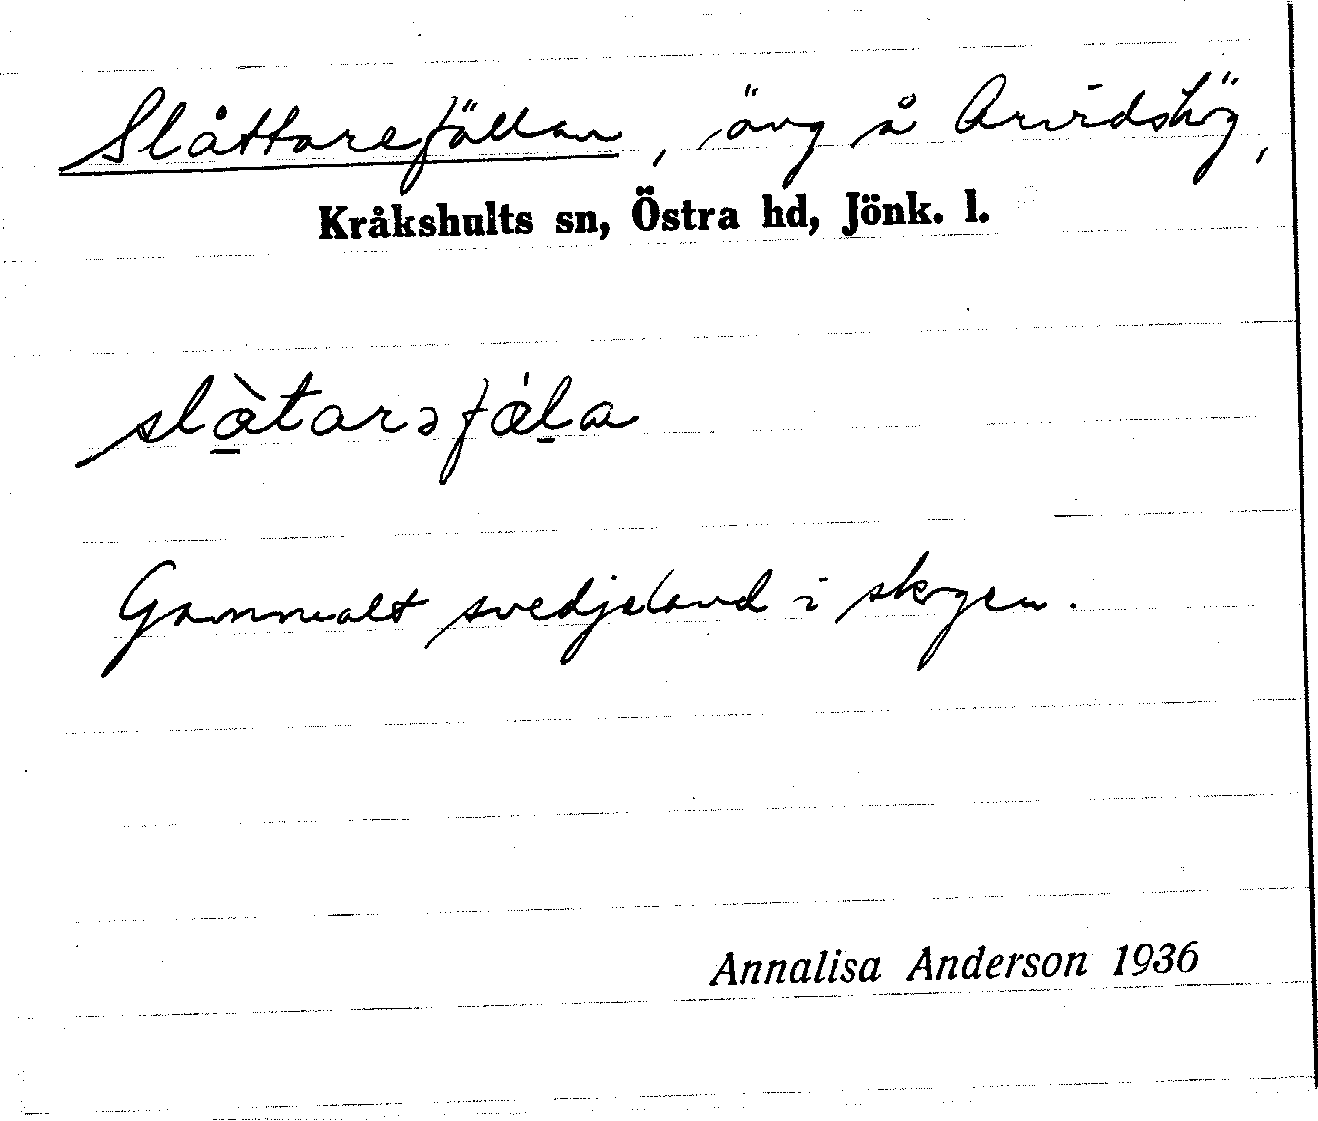 Slåttarefällan, äng å Arvidshög,
Kråkshults sn, Östra hd, Jönk. l.
slàtarəfǽla
Gammalt svedjeland i skogen.
Annalisa Anderson 1936